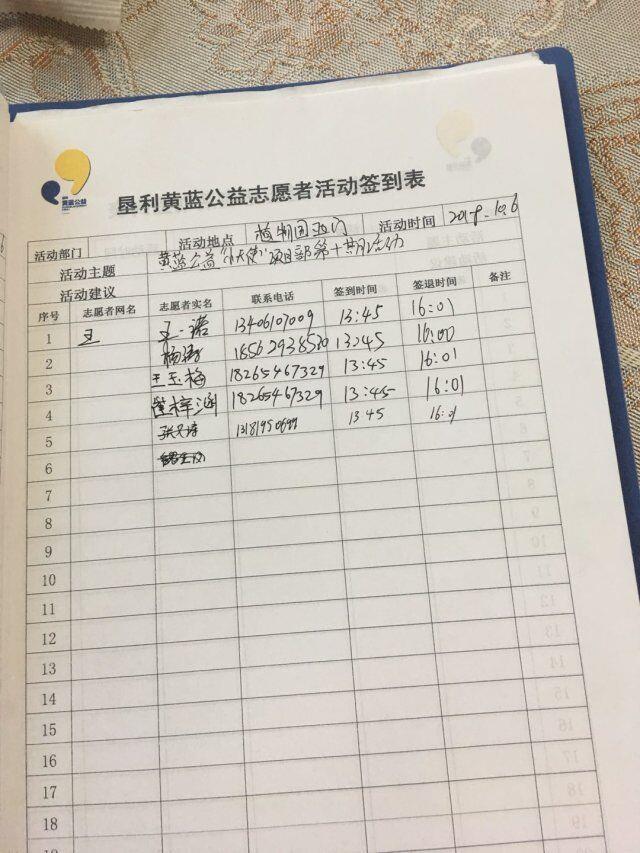 黄蓝公益
垦利黄蓝公益志愿者活动签到表
活动部门 活动地点 植物园西门 活动时间
活动主题 黄蓝公益"小天使"项目部第十 活动
活动建议
序号 志愿者网名 志愿者实名 联系电话 签到时间 签退时间 备注
1 王 王一诺 13406107009 13:45 16:01
2 杨 13:45 16:00
3 王玉梅 18265467329 13:45 16:01
4 梓涵 18265467329 13:45 16:01
5 张 13:45 16:01
6
7
8
9
10
11
12
13
14
15
16
17
18